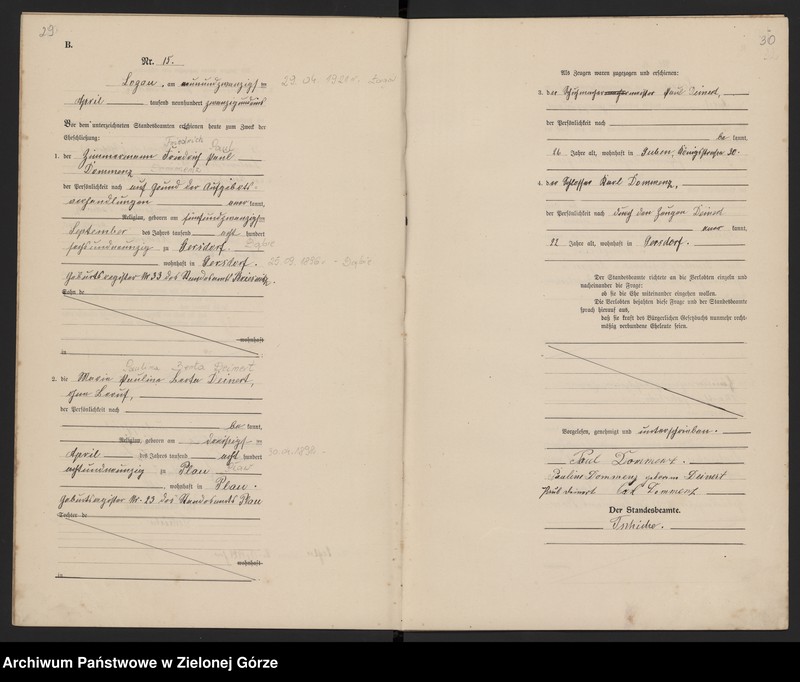 29
B.
Nr. 15.
Logau, am neunundzwanzigsten
29.04.1921r.
April tausend neunhundert zwanzigundeins
Vor dem unterzeichneten Standesbeamten erschienen heute zum Zweck der
Eheschließung:
Friedrich Paul
1. der Zimmermann Friedrich Paul
Dommenz
Dommenz
der Persönlichkeit nach auf Grund der Aufgebots-
verhandlungen kannt,
Religion, geboren am fünfundzwanzigsten
September des Jahres tausend acht hundert
sechsundneunzig zu Gersdorf.
wohnhaft in Gersdorf.
25.09.1896r.
Geburtsregister Nr 33 des Standesamts
Sohn de
wohnhaft
in
Paulina Berta Deinert
2. die Maria Pauline Berta Deinert,
ohne Beruf,
der Persönlichkeit nach
be kannt,
Religion, geboren am dreißigsten
April des Jahres tausend acht hundert
30.04.1898r.
achtundneunzig zu Plau
Plau
, wohnhaft in Plau.
Geburtsregister Nr. 23 des Standesamts Plau
Tochter de
wohnhaft
in
30
Als Zeugen waren zugezogen und erschienen:
3. der Schuhmachermeister Paul Deinert,
der Persönlichkeit nach
be kannt,
Jahre alt, wohnhaft in Guben, Königstrasse 30.
4. der Schlosser Karl Dommenz,
der Persönlichkeit nach durch den Zeugen Deinert
kannt,
22 Jahre alt, wohnhaft in Gersdorf.
Der Standesbeamte richtete an die Verlobten einzeln und
nacheinander die Frage:
ob sie die Ehe miteinander eingehen wollen.
Die Verlobten bejahten diese Frage und der Standesbeamte
sprach hierauf aus,
daß sie kraft des Bürgerlichen Gesetzbuchs nunmehr recht-
mäßig verbundene Eheleute seien.
Vorgelesen, genehmigt und unterschrieben.
Paul Dommenz.
Pauline Dommenz geborene Deinert
Paul Deinert Karl Dommenz
Der Standesbeamte.
Archiwum Państwowe w Zielonej Górze